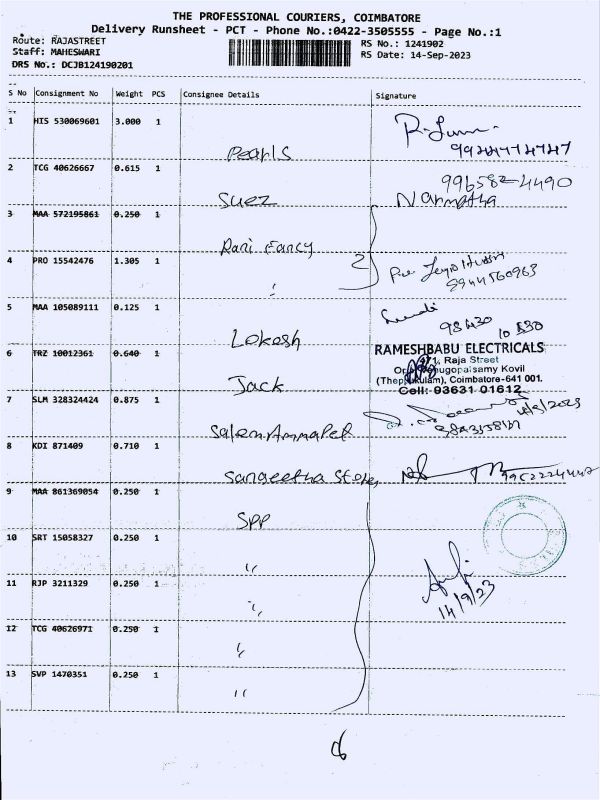 THE PROFESSIONAL COURIERS, COIMBATORE
Delivery Runsheet - PCT - Phone No.:0422-3505555 - Page No.:1
Route: RAJASTREET RS No.: 1241902
Staff: MAHESWARI RS Date: 14-Sep-2023
DRS No.: DCJB124190201
S No Consignment No Weight PCS Consignee Details Signature
1 HIS 530069601 3.000 1
Pearls
2 TCG 40626667 0.615 1 996582-4490
Suez Narmatha
3 MAA 572195861 0.250 1
Rani Fancy
4 PRO 15542476 1.305 1 2
"
8944560963
5 MAA 105089111 0.125 1
Lokesh 98430
RAMESHBABU ELECTRICALS
6 TRZ 10012361 0.640 1 Raja Street
Jack (Theppakulam), Coimbatore-641 001.
Cell: 93631 01612
7 SLM 328324424 0.875 1
Salem Ammapet
8 KDI 871409 0.710 1
Sangeetha Stores
9 MAA 861369054 0.250 1
SPP
10 SRT 15058327 0.250 1
"
11 RJP 3211329 0.250 1
" 14/9/23
12 TCG 40626971 0.250 1
"
13 SVP 1470351 0.250 1
"